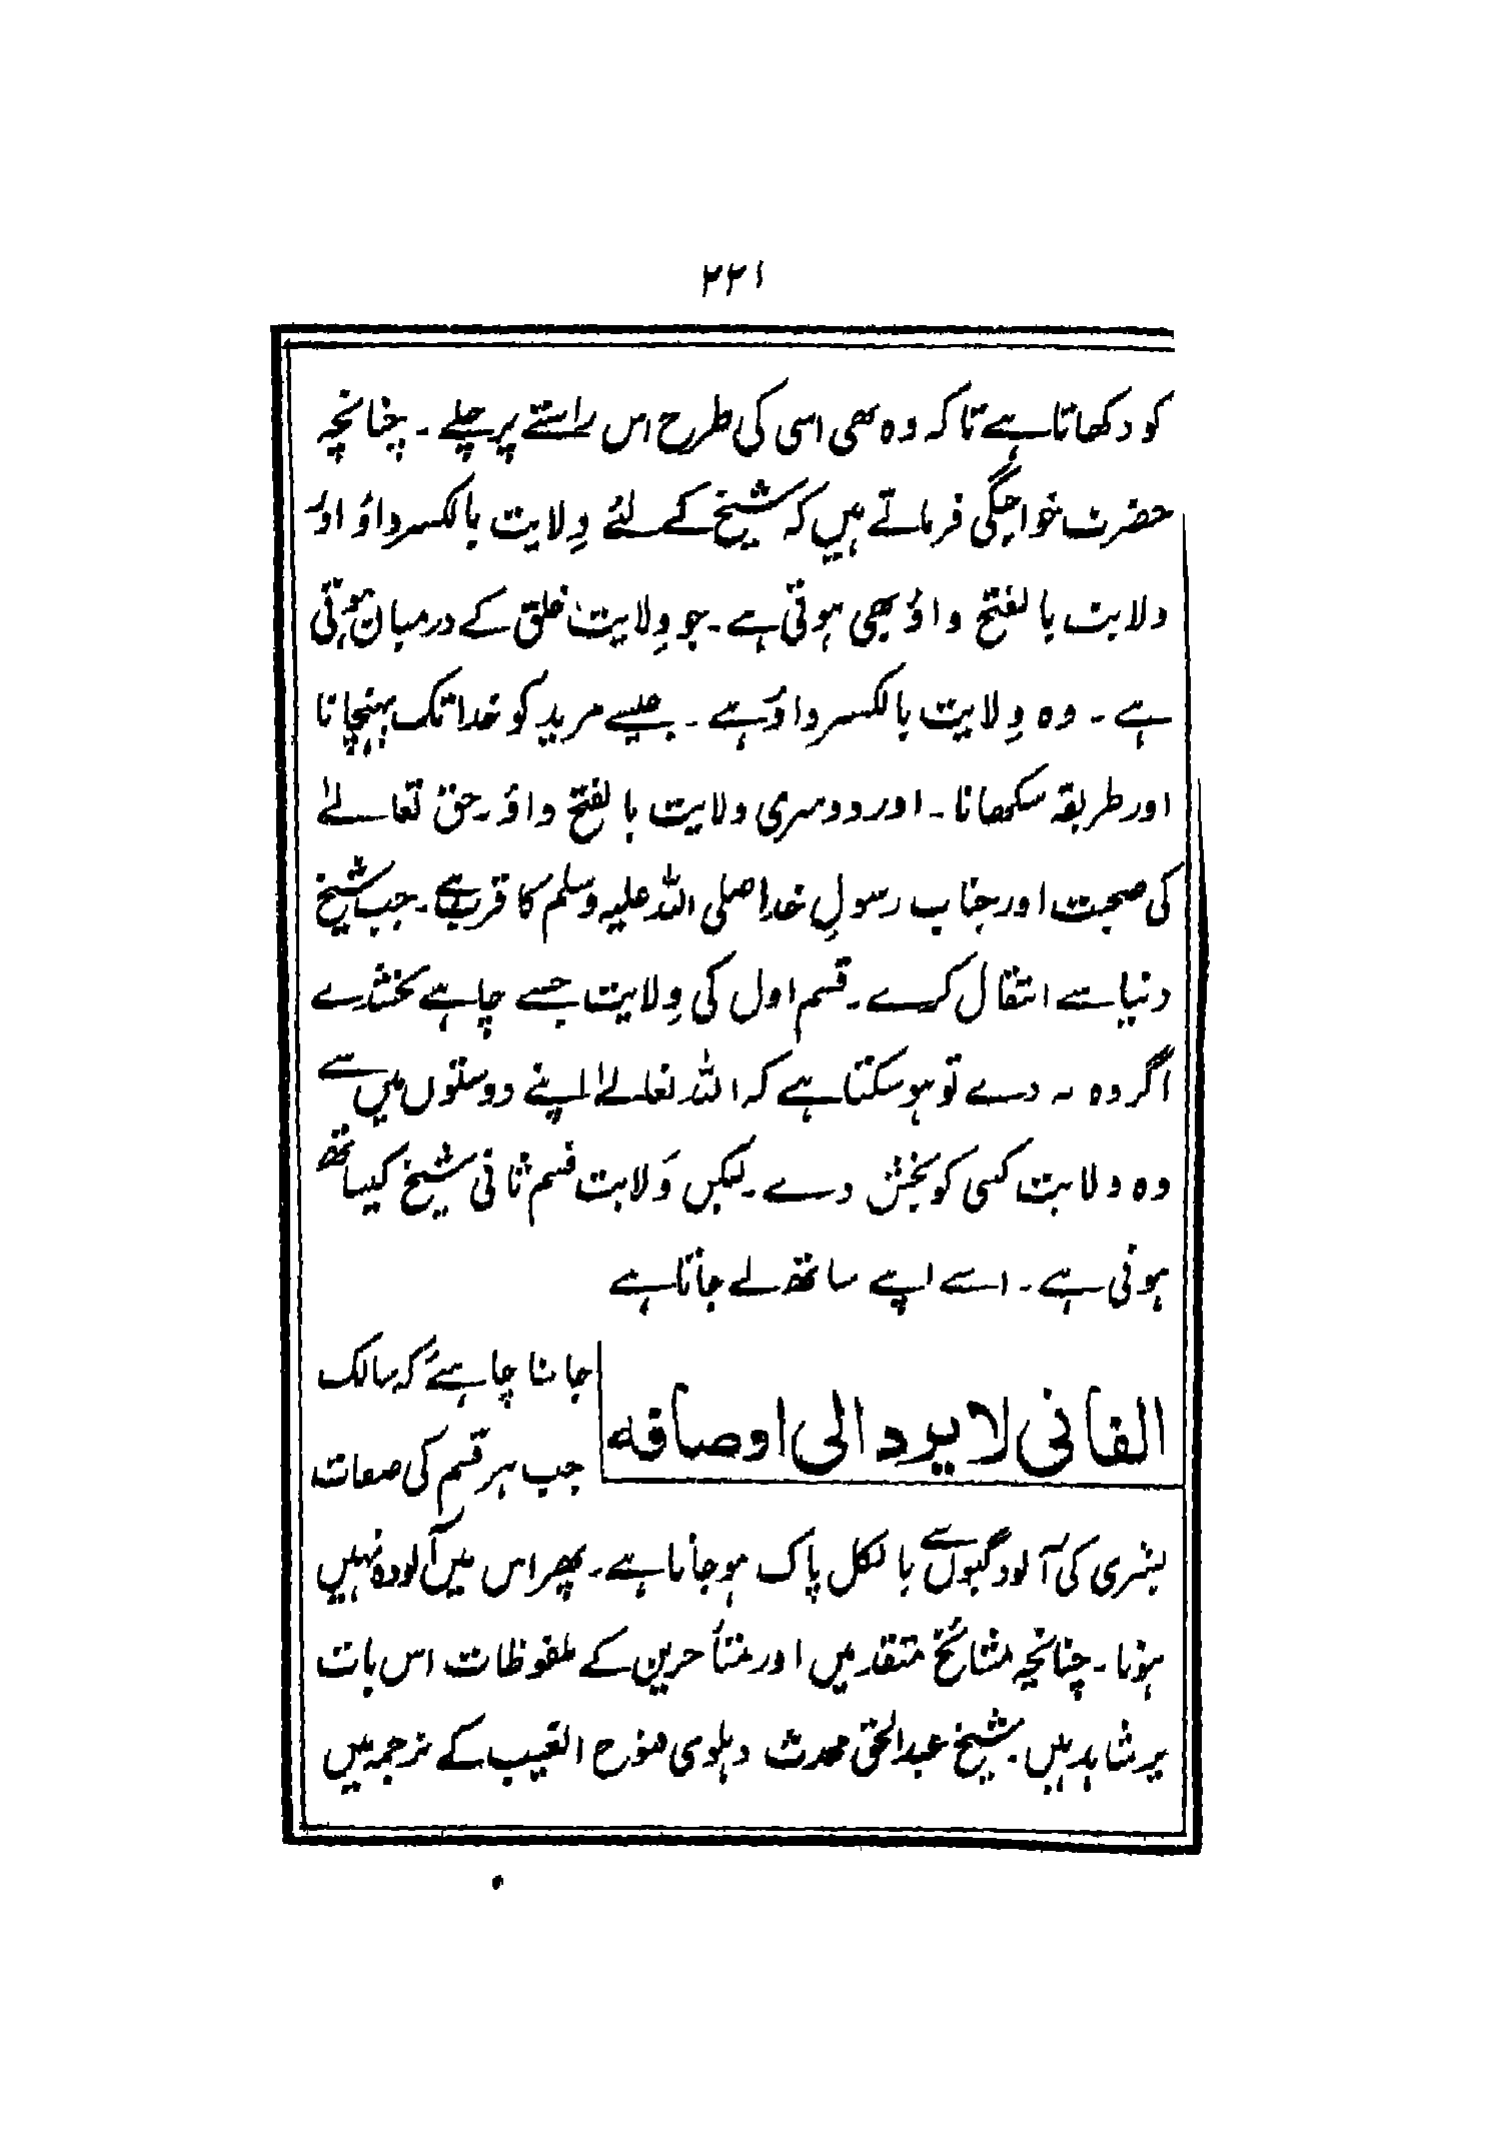 ۲۲۱
کو دکھاتا ہے تاکہ وہ بھی اسی کی طرح اس راستے پر چلے ۔ چنانچہ
حضرت خواجگی فرماتے ہیں کہ شیخ کے لئے وِلایت بالکسر واؤ اور
ولایت بالفتح واؤ بھی ہوتی ہے ۔ جو وِلایت خلق کے درمیان ہوتی
ہے ۔ وہ وِلایت بالکسر واؤ ہے ۔ جیسے مرید کو خدا تک پہنچانا
اور طریقہ سکھانا ۔ اور دوسری ولایت بالفتح واؤ ۔ حق تعالےٰ
کی صحبت اور جناب رسولِ خدا صلی اللہ علیہ وسلم کا قرب ہے ۔ جب شیخ
دنیا سے انتقال کرے ۔ قسم اول کی وِلایت جسے چاہے بخشدے
اگر وہ نہ دے تو ہو سکتا ہے کہ اللہ تعالےٰ اپنے دوستوں میں سے
وہ ولایت کسی کو بخش دے ۔ لیکن وَلایت قسم ثانی شیخ کیساتھ
ہوتی ہے ۔ اسے اپنے ساتھ لے جاتا ہے
الفانی لا یرد الی اوصافہ
جاننا چاہئے کہ سالک
جب ہر قسم کی صفات
بشری کی آلودگیوں سے بالکل پاک ہو جاتا ہے ۔ پھر اس میں آلودہ نہیں
ہوتا ۔ چنانچہ مشائخ متقدمین اور متأخرین کے ملفوظات اس بات
پر شاہد ہیں ۔ شیخ عبدالحق محدث دہلوی فتوح الغیب کے ترجمہ میں